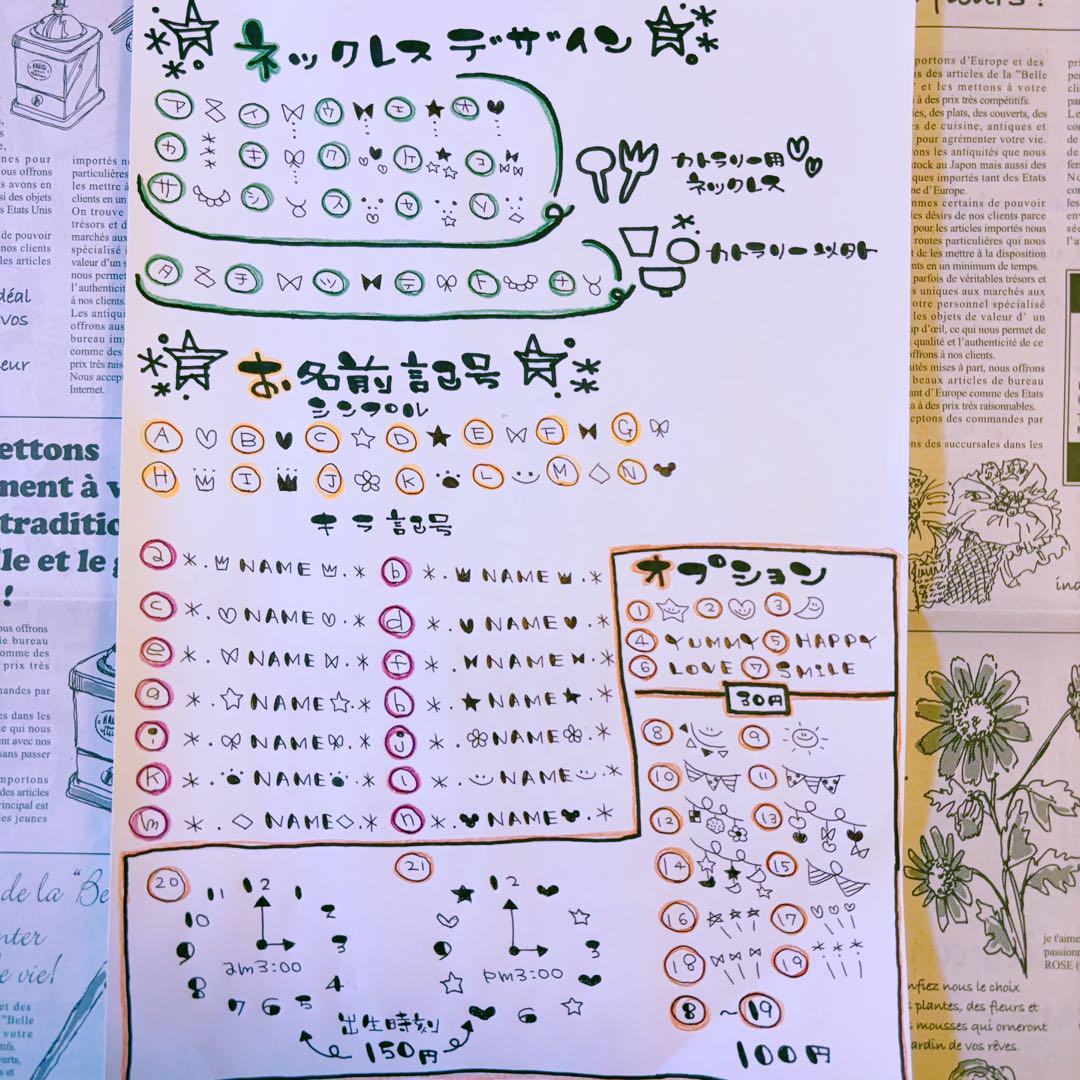 ネックレスデザイン
ア イ ウ エ オ
カ キ ク ケ コ
サ シ ス セ ソ
カトラリー用
ネックレス
カトラリー以外
タ チ ツ テ ト ナ
お名前記号
シンプル
A B C D E F G
H I J K L M N
キラ記号
a *. NAME .* b *. NAME .*
c *. NAME .* d *. NAME .*
e *. NAME .* f *. NAME .*
g *. NAME .* h *. NAME .*
i *. NAME .* j *. NAME .*
k *. NAME .* l *. NAME .*
m *. NAME .* n *. NAME .*
オプション
① ② ③
④ YUMMY ⑤ HAPPY
⑥ LOVE ⑦ SMILE
30円
⑧ ⑨
⑩ ⑪
⑫ ⑬
⑭ ⑮
⑯ ⑰
⑱ ⑲
⑧~⑲
100円
⑳
12
11 1
10 2
9 3
am3:00
8 4
7 6 5
㉑
12
3
pm3:00
6
出生時刻
150円
importés
particulières
les mettre à
clients en un
On trouve
trésors et d
marchés aux
spécialisé i
valeur d'un s
nous permet
l'authenticité
à nos clients.
Les antiqui
offrons aus
bureau im
comme des
prix très rais
Nous accep
Internet.
ettons
ment à v
traditio
lle et le g
!
de la "Be
portons d'Europe et des
is des articles de la "Belle
et les mettons à votre
à des prix très compétitifs.
les, des plats, des couverts, des
s de cuisine, antiques et
pour agrémenter votre vie.
ons les antiquités que nous
tock au Japon mais aussi des
es importés tant des Etats
ne d'Europe.
mmes certains de pouvoir
les désirs de nos clients parce
pour les articles importés nous
routes particulières qui nous
t de les mettre à la disposition
nts en un minimum de temps.
parfois de véritables trésors et
s uniques aux marchés aux
otre personnel spécialisé
les objets de valeur d' un
up d'œil, ce qui nous permet de
qualité et l'authenticité de ce
offrons à nos clients.
ités mises à part, nous offrons
beaux articles de bureau
ant d'Europe comme des Etats
a à des prix très raisonnables.
ptons des commandes par
ns des succursales dans les
je t'aime
passionn
ROSE (
nfiez nous le choix
plantes, des fleurs et
mousses qui orneront
ardin de vos rêves.